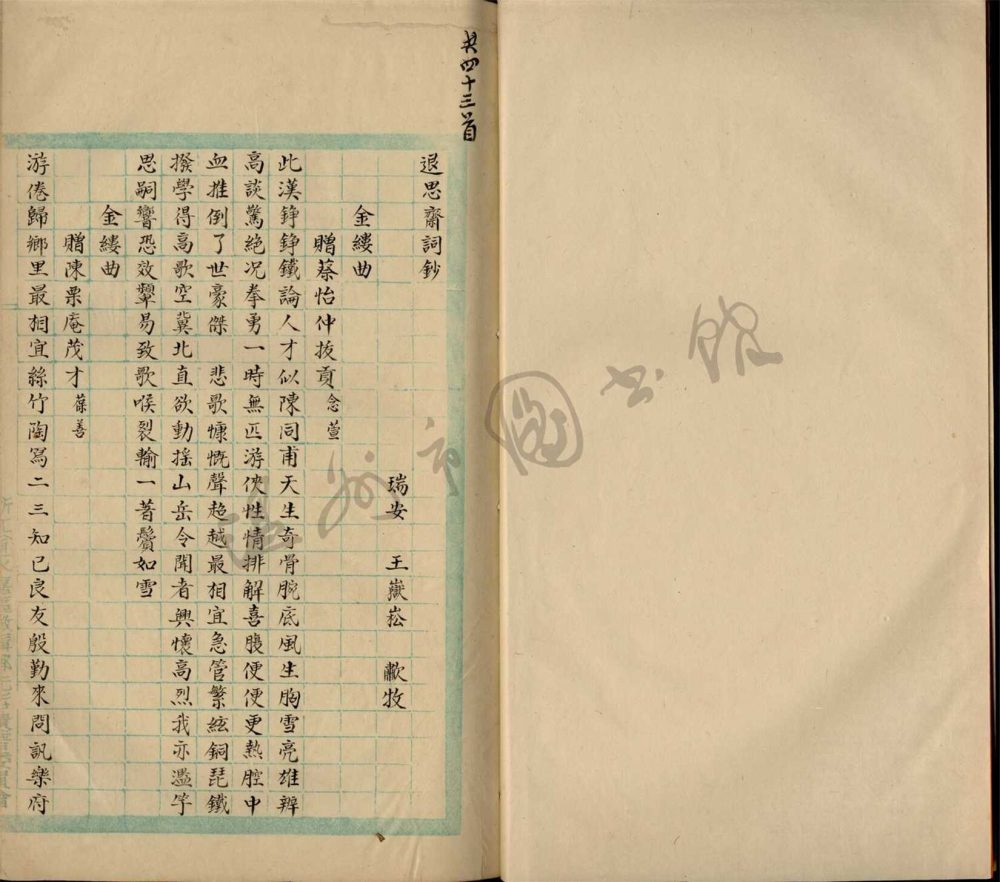 共四十三首
退思齋詞鈔
瑞安　王嶽崧　歗牧
金縷曲
贈蔡怡仲拔貢念萱
此漢錚錚鐵論人才似陳同甫天生奇骨腕底風生胸雪亮雄辨
高談驚絕况拳勇一時無匹游俠性情排解喜腹便便更熱腔中
血推倒了世豪傑　悲歌慷慨聲超越最相宜急管繁絃銅琵鐵
撥學得高歌空冀北直欲動搖山岳令聞者興懷高烈我亦濫竽
思嗣響恐效顰易致歌喉裂輸一著鬢如雪
金縷曲
贈陳栗庵茂才葆善
游倦歸鄉里最相宜絲竹陶寫二三知已良友殷勤來問訊樂府
溫州市圖書館